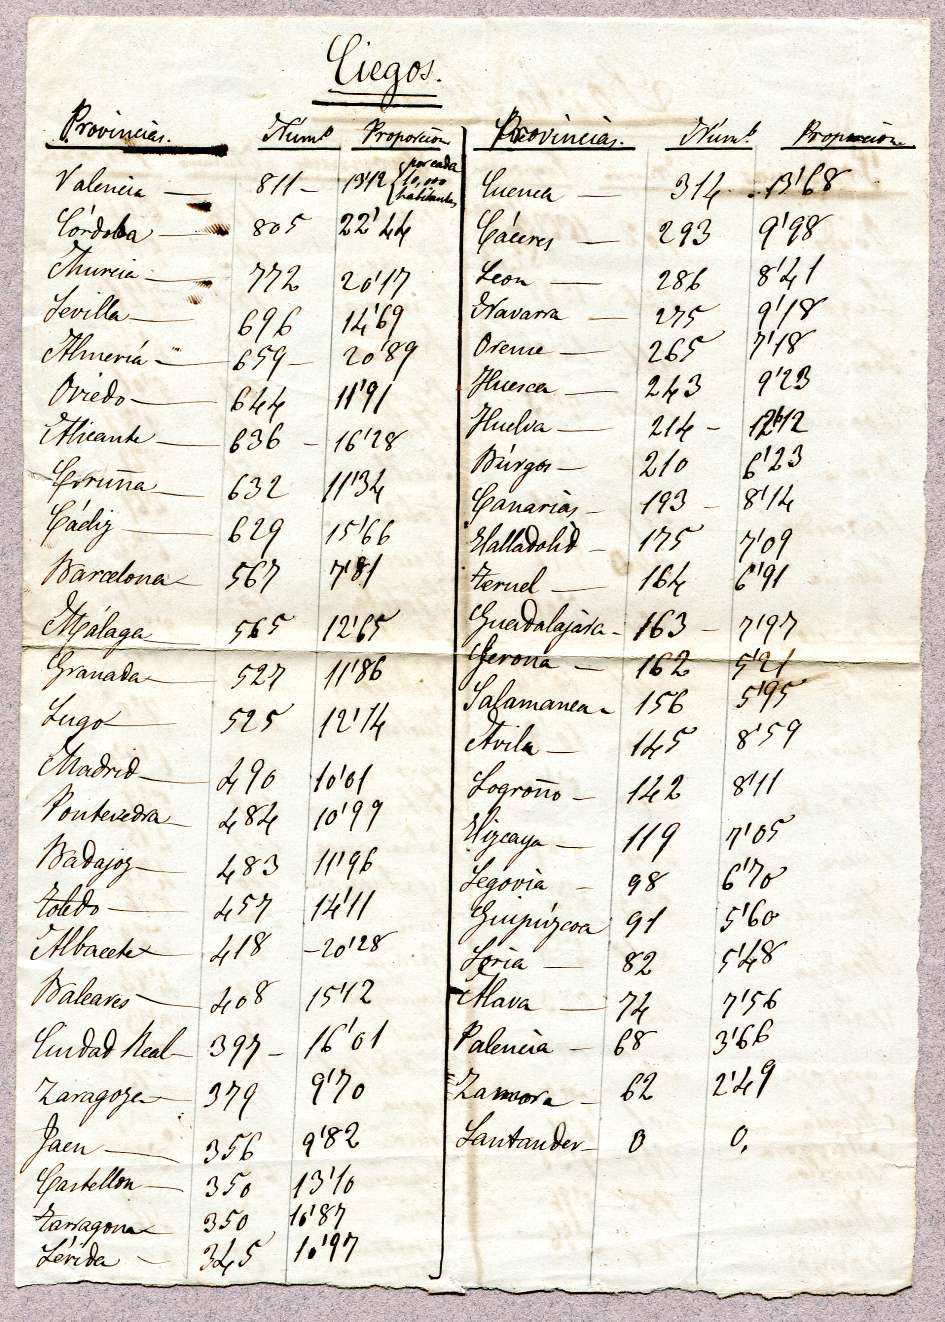 Ciegos.
Provincias. Núm.º Proporción
Valencia — 811 — 13'12 por cada 10,000 habitantes
Córdoba — 805 22'44
Murcia — 772 20'17
Sevilla — 696 14'69
Almería — 659 — 20'89
Oviedo — 644 11'91
Alicante — 636 — 16'28
Coruña — 632 11'34
Cádiz — 629 15'66
Barcelona — 567 7'81
Málaga — 565 12'65
Granada — 527 11'86
Lugo — 525 12'14
Madrid — 490 10'01
Pontevedra — 484 10'99
Badajoz — 483 11'96
Toledo — 457 14'11
Albacete — 418 — 20'28
Baleares — 408 15'12
Ciudad Real — 397 — 16'01
Zaragoza — 379 9'70
Jaen — 356 9'82
Castellon — 350 13'10
Tarragona — 350 10'87
Lérida — 345 10'97
Provincias. Núm.º Proporcion
Cuenca — 314 13'68
Cáceres — 293 9'98
Leon — 286 8'41
Navarra — 275 9'18
Orense — 265 7'18
Huesca — 243 9'23
Huelva — 214 —
Búrgos — 210 6'23
Canarias — 193 — 8'14
Valladolid — 175 7'09
Teruel — 164 6'91
Guadalajara — 163 — 7'97
Gerona — 162 5'21
Salamanca — 156 5'95
Avila — 145 8'59
Logroño — 142 8'11
Vizcaya — 119 7'05
Segovia — 98 6'70
Guipúzcoa 91 5'60
Soria — 82 5'48
Alava — 74 7'56
Palencia — 68 3'66
Zamora — 62 2'49
Santander — 0 0.